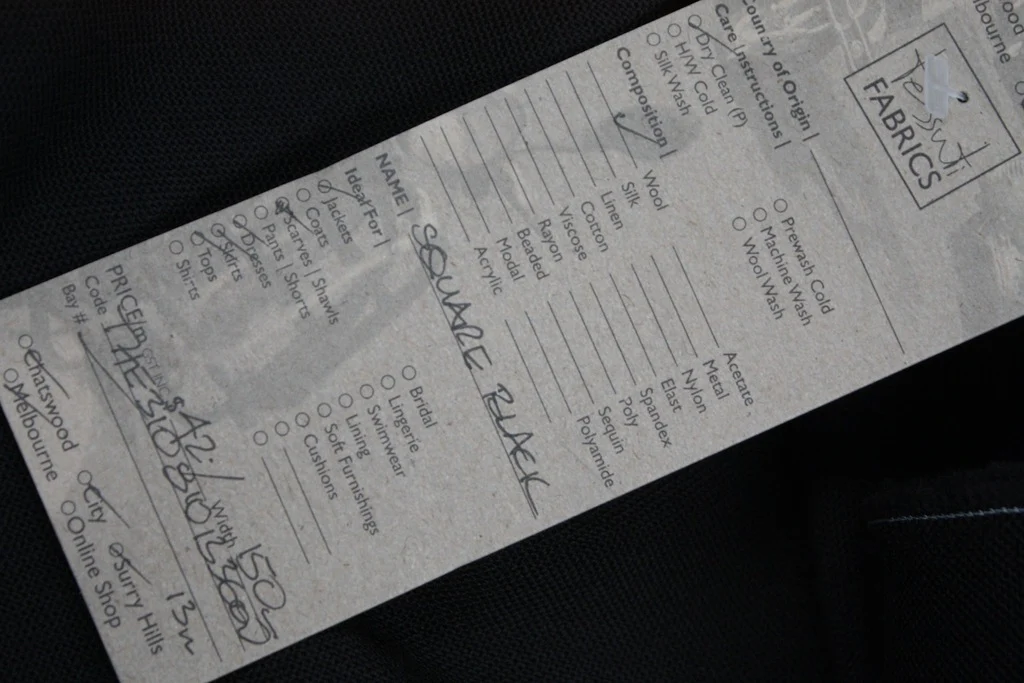 Tessuti
FABRICS
Country of Origin |
Care Instructions |
Dry Clean (P)
H/W Cold
Silk Wash
Prewash Cold
Machine Wash
Wool Wash
Composition |
Wool
Silk
Linen
Cotton
Viscose
Rayon
Beaded
Modal
Acrylic
Acetate
Metal
Nylon
Elast
Spandex
Poly
Sequin
Polyamide
NAME | SQUARE BLACK
Ideal For |
Jackets
Coats
Scarves | Shawls
Pants | Shorts
Dresses
Skirts
Tops
Shirts
Bridal
Lingerie
Swimwear
Lining
Soft Furnishings
Cushions
PRICE/m $42./ Width 150
Code
Bay # 13m
Chatswood
Melbourne
City
Surry Hills
Online Shop